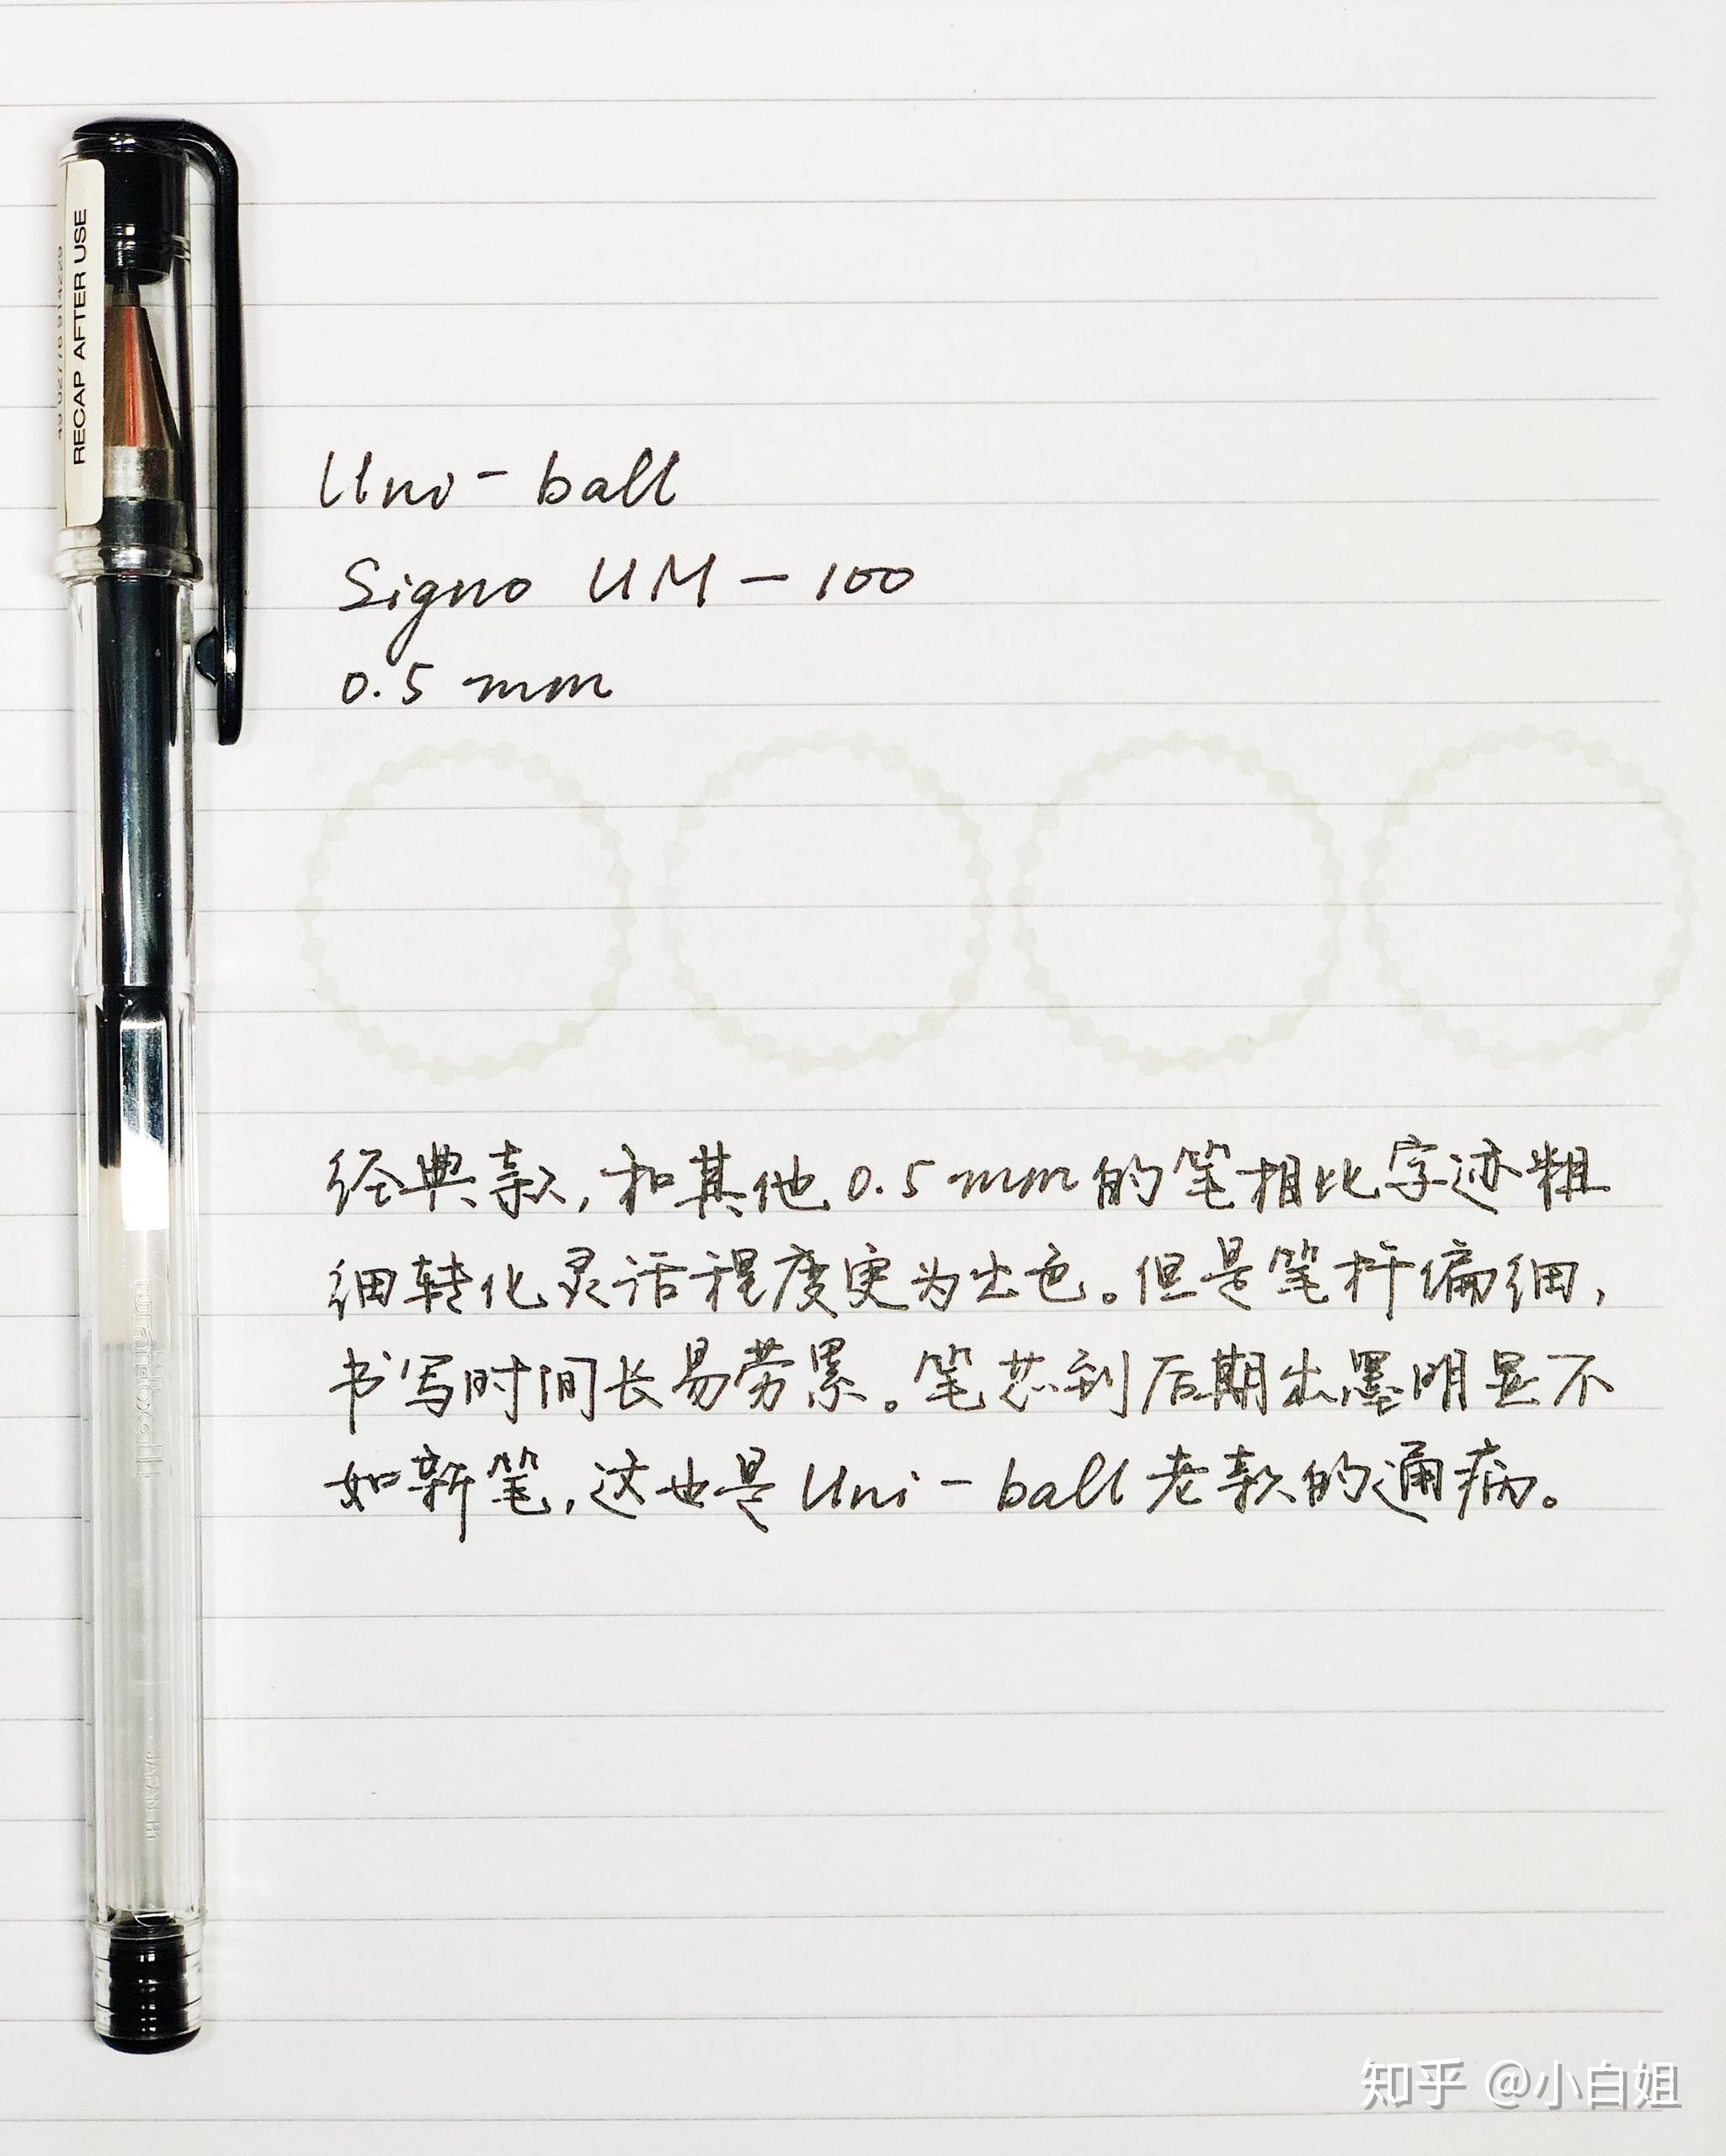 RECAP AFTER USE
Uni-ball
Signo UM-100
0.5 mm
经典款,和其他0.5mm的笔相比字迹粗
细转化灵活程度更为出色。但是笔杆偏细,
书写时间长易劳累。笔芯到后期出墨明显不
如新笔,这也是Uni-ball老款的通病。
知乎 @小白姐